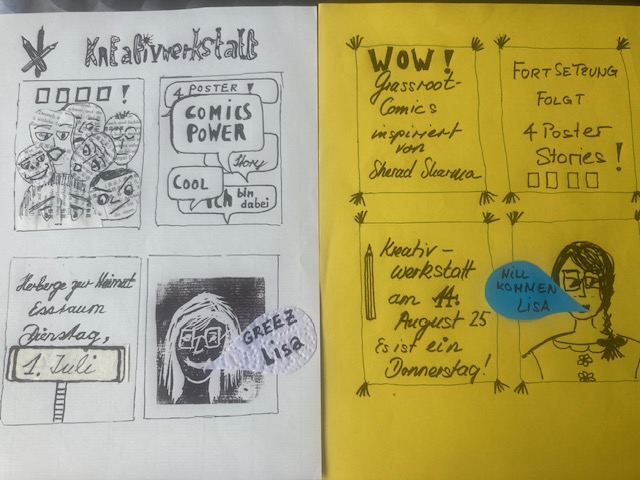 KnEativwerkstatt
!
4 POSTER !
COMICS
POWER
Story
COOL
Ich bin
dabei
Herberge zur Heimat
Essraum
Dienstag,
1. Juli
GREEZ
Lisa
WOW!
Grassroot-
Comics
inspiriert
von
Sharad Sharma
FORTSETZUNG
FOLGT
4 Poster
Stories!
Kreativ-
werkstatt
am 14.
August 25
Es ist ein
Donnerstag!
WILL
KOMMEN
LISA